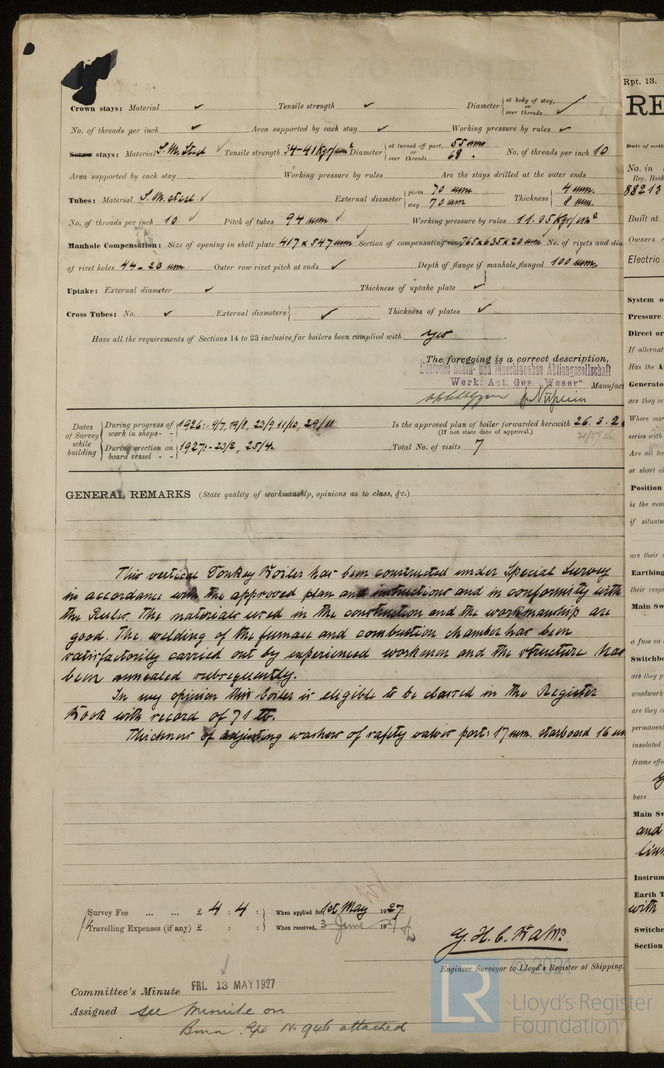 Crown stays: Material ✓ Tensile strength ✓ Diameter { at body of stay, or over threads ✓
No. of threads per inch ✓ Area supported by each stay ✓ Working pressure by rules ✓
Screw stays: Material S.M. Steel ✓ Tensile strength 34-41 Kgr/mm² Diameter { at turned off part, or over threads 55 mm 68 " No. of threads per inch 10
Area supported by each stay Working pressure by rules Are the stays drilled at the outer ends
Tubes: Material S.M. steel ✓ External diameter { plain 70 mm stay 70 mm Thickness { 4 mm 8 mm
No. of threads per inch 10 ✓ Pitch of tubes 94 mm Working pressure by rules 11.05 Kgr/cm²
Manhole Compensation: Size of opening in shell plate 417 x 547 mm Section of compensating ring 765 x 635 x 20 mm No. of rivets and dia
of rivet holes 44 - 23 mm Outer row rivet pitch at ends ✓ Depth of flange if manhole flanged 100 mm
Uptake: External diameter ✓ Thickness of uptake plate ✓
Cross Tubes: No. ✓ External diameters { ✓ Thickness of plates ✓
Have all the requirements of Sections 14 to 23 inclusive for boilers been complied with yes
The foregoing is a correct description,
Deutsche Schiff- und Maschinenbau Aktiengesellschaft
Werk: Act. Ges. „Weser" Manufact
Dates of Survey while building { During progress of work in shops - - 1926:- 9/7, 19/8, 23/9 11/10, 29/11 Is the approved plan of boiler forwarded herewith 26. 3. 2
(If not state date of approval.)
During erection on board vessel - - 1927:- 23/2, 25/4 Total No. of visits 7
GENERAL REMARKS (State quality of workmanship, opinions as to class, &c.)
This vertical Donkey Boiler has been constructed under Special Survey
in accordance with the approved plan and instructions and in conformity with
the Rules. The materials used in the construction and the workmanship are
good. The welding of the furnace and combustion chamber has been
satisfactorily carried out by experienced workmen and the structure has
been annealed subsequently.
In my opinion this boiler is eligible to be classed in the Register
Book with record of 71 lb.
Thickness of adjusting washers of safety valves port: 17 mm. starboard 16 mm
Survey Fee ... ... £ 4 : 4 : When applied for, 1st May 1927
Travelling Expenses (if any) £ : : When received, 3 June 19
Engineer Surveyor to Lloyd's Register of Shipping.
Committee's Minute FRI. 13 MAY 1927
Assigned see minute on
Rpt No 946 attached
© 2021
LR Lloyd's Register
Foundation
Rpt. 13.
RE
Date of writ
No. in
Reg. Book
88213
Built at
Owners
Electric
System o
Pressure
Direct or
If alternat
Has the A
Generato
are they o
Where mor
series with
Are all te
or short ci
Position
is the ven
if situate
are their e
Earthing
their respe
Main Sw
a fuse on
Switchbo
are they p
woodwork
are they c
permanent
insulated
frame effe
bars
Main Sw
and
Instrum
Earth T
with
Switche
Section